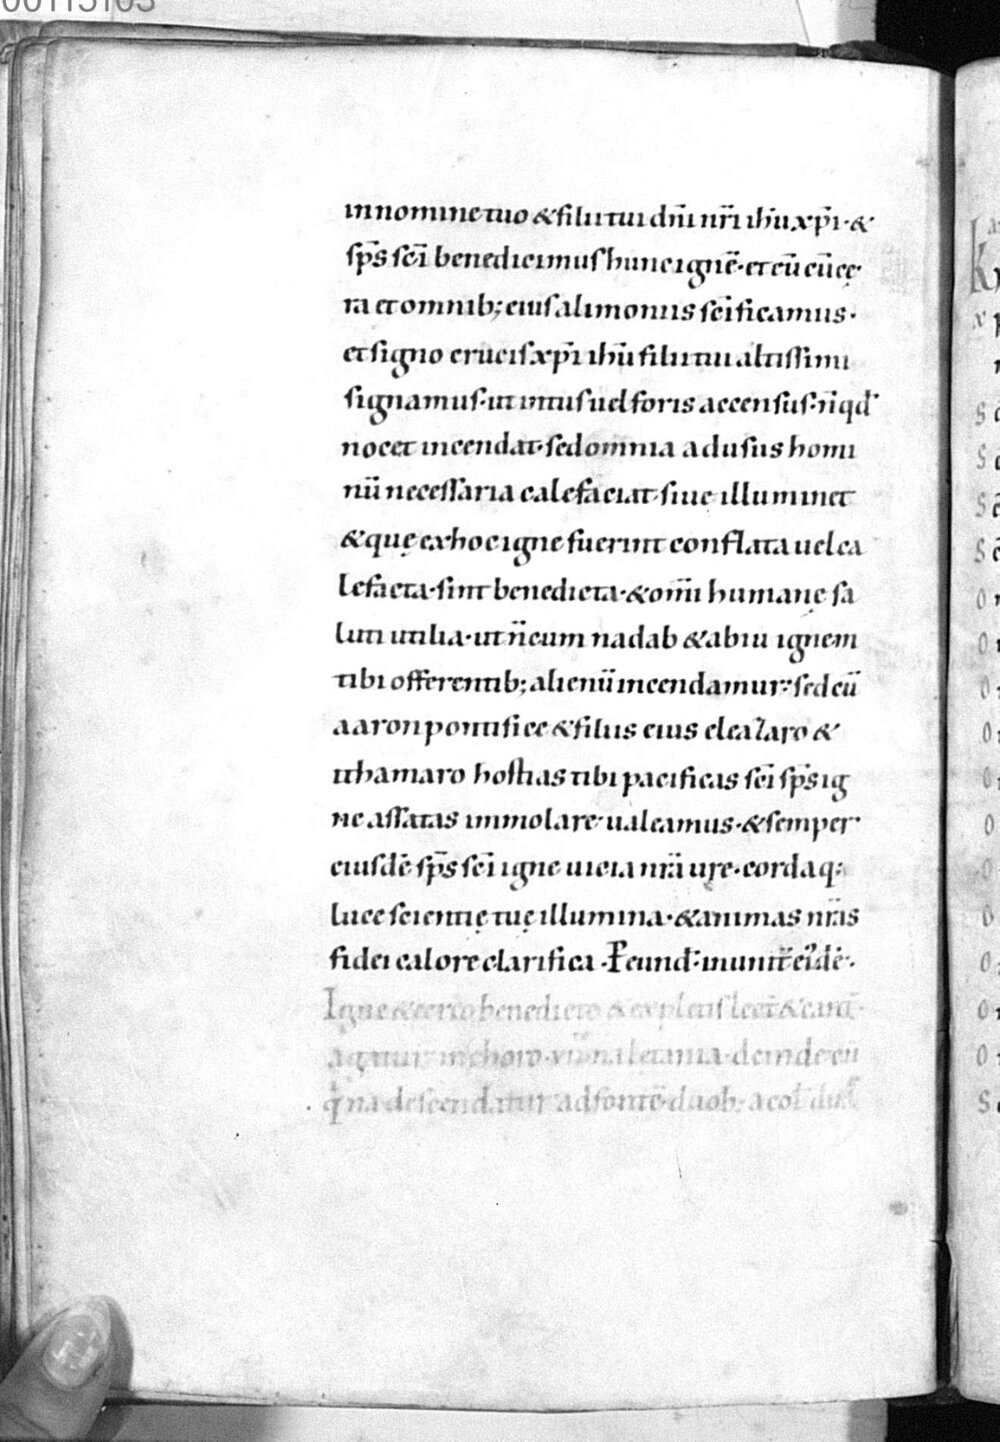 00115103
in nomine tuo & filii tui dn̄i nr̄i ih̄u xp̄i · &
sp̄s sc̄i benedicimus hunc ignē · et cū cū cę
ra et omnib; eius alimoniis sc̄ificamus ·
et signo crucis xp̄i ih̄u filii tui altissimi
signamus · ut intus uel foris accensus · n̄ qd̄
nocet incendat · sed omnia ad usus homi
nū necessaria calefaciat · siue illuminet
& quę ex hoc igne fuerint conflata uel ca
lefacta · sint benedicta · & om̄i humanę sa
luti utilia · ut n̄ cum nadab & abiu ignem
tibi offerentib; alienū incendamur · sed cū
aaron pontifice & filiis eius eleazaro &
ithamaro hostias tibi pacificas sc̄i sp̄s ig
ne assatas immolare ualeamus · & semper
eiusdē sp̄s sc̄i igne uicia nr̄a ure · cordaq;
luce scientię tuę illumina · & animas nr̄as
fidei calore clarifica · P eund̄ · in unit̄ ei'dē ·
Igne & cereo benedicto & expletis lect̄ & cant̄ ·
agatur in choro · vii na letania · deinde cū
q̇na descendatur ad fontē duob; acol
K
x p
S
S
S
S
O
O
O
O
O
O
O
O
O
O
O
S